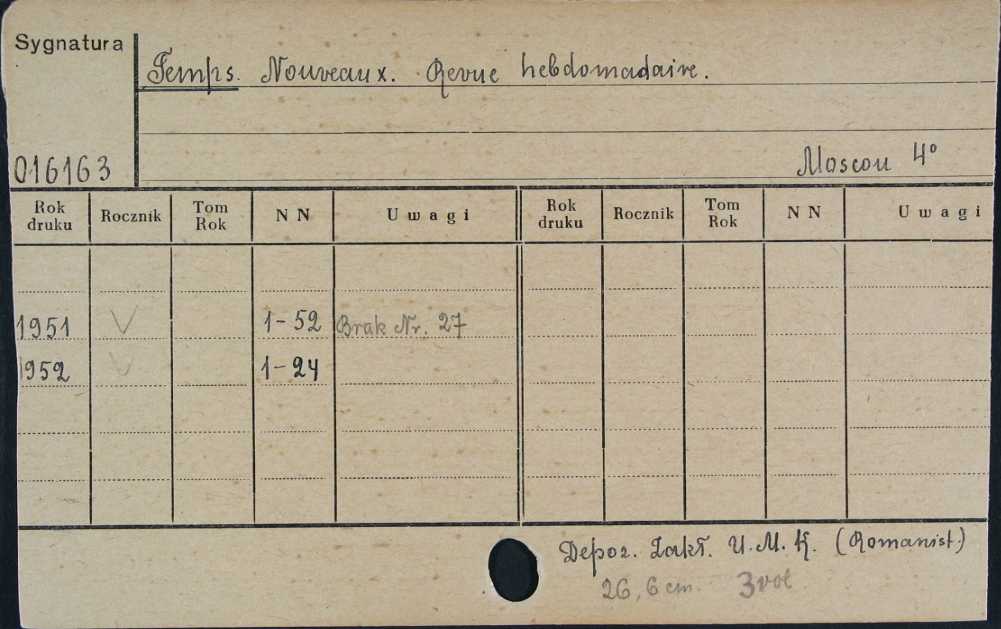 Sygnatura
Temps Nouveaux. Revue hebdomadaire.
016163
Moscou 4°
Rok druku Rocznik Tom Rok N N Uwagi Rok druku Rocznik Tom Rok N N Uwagi
1951 V 1-52 Brak Nr. 27
1952 V 1-24
Depoz. Zakł. U.M.K. (Romanist.)
26,6 cm. 3 vol.